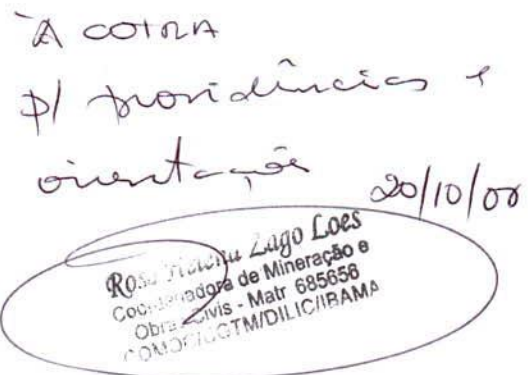 À COTRA
p/ providências e
orientação 20/10/08
Rosa Helena Zago Loes
Coordenadora de Mineração e
Obras Civis - Matr 685656
COMOC/CGTM/DILIC/IBAMA